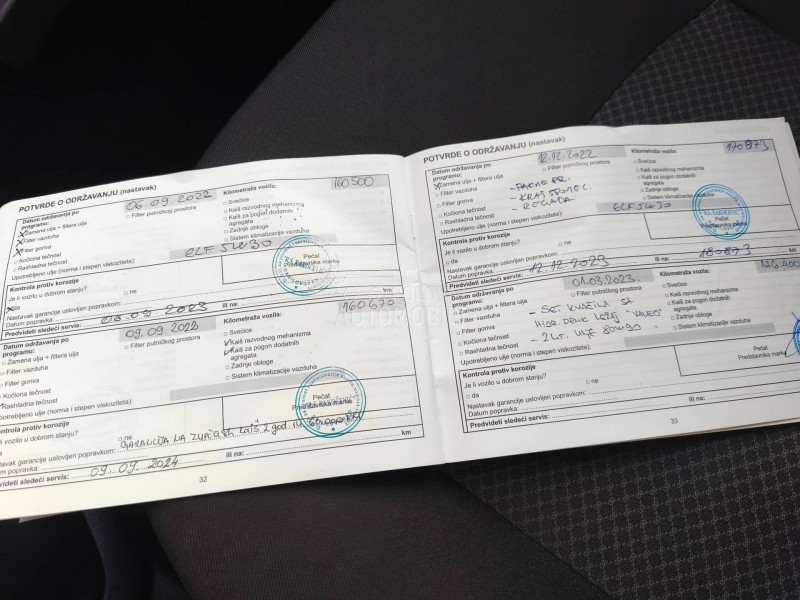 POTVRDE O ODRŽAVANJU (nastavak)
Datum održavanja po programu: 06.09.2022 Kilometraža vozila: 160500
Zamena ulja + filtera ulja
Filter putničkog prostora
Svećice
Filter vazduha
Kaiš razvodnog mehanizma
Filter goriva
Kaiš za pogon dodatnih agregata
Kočiona tečnost
Zadnje obloge
Rashladna tečnost
Sistem klimatizacije vazduha
Upotrebljeno ulje (norma i stepen viskoziteta): ELF 5W30
Kontrola protiv korozije
Pečat
Predstavnika marke
Je li vozilo u dobrom stanju?
da
ne
Nastavak garancije uslovljen popravkom:
Datum popravka:
Predvideti sledeći servis: 06.09.2023 ili na: km
Datum održavanja po programu: 09.09.2022 Kilometraža vozila: 160670
Zamena ulja + filtera ulja
Filter putničkog prostora
Svećice
Filter vazduha
Kaiš razvodnog mehanizma
Filter goriva
Kaiš za pogon dodatnih agregata
Kočiona tečnost
Zadnje obloge
Rashladna tečnost
Sistem klimatizacije vazduha
Upotrebljeno ulje (norma i stepen viskoziteta):
Kontrola protiv korozije
Pečat
Predstavnika marke
li vozilo u dobrom stanju?
ne
GARANCIJA NA ZUPČASTI KAIŠ 2 god.
stavak garancije uslovljen popravkom:
um popravka:
videti sledeći servis: 09.09.2024 ili na: km
32
POTVRDE O ODRŽAVANJU (nastavak)
Datum održavanja po programu: 12.12.2022 Kilometraža vozila: 170873
Zamena ulja + filtera ulja
Filter putničkog prostora
Svećice
Filter vazduha
Kaiš razvodnog mehanizma
Filter goriva
Kaiš za pogon dodatnih agregata
- KRAJ SPONE L.
Kočiona tečnost
Zadnje obloge
Rashladna tečnost
Sistem klimatizacije vazduha
Upotrebljeno ulje (norma i stepen viskoziteta): ELF 5W30
Kontrola protiv korozije
Pečat
Predstavnika marke
Je li vozilo u dobrom stanju?
da
ne
Nastavak garancije uslovljen popravkom:
Datum popravka:
Predvideti sledeći servis: 12.12.2023 ili na: 180873 km
Datum održavanja po programu: 01.03.2023. Kilometraža vozila:
Zamena ulja + filtera ulja
Filter putničkog prostora
Svećice
Filter vazduha
Kaiš razvodnog mehanizma
Filter goriva
Kaiš za pogon dodatnih agregata
- SET KVAČILA SA
HIDR. DRUK LEŽAJ "VALEO"
- 2 LIT. ULJE 80W90
Kočiona tečnost
Zadnje obloge
Rashladna tečnost
Sistem klimatizacije vazduha
Upotrebljeno ulje (norma i stepen viskoziteta):
Kontrola protiv korozije
Pečat
Predstavnika marke
Je li vozilo u dobrom stanju?
da
ne
Nastavak garancije uslovljen popravkom:
Datum popravka:
Predvideti sledeći servis: ili na: km
33